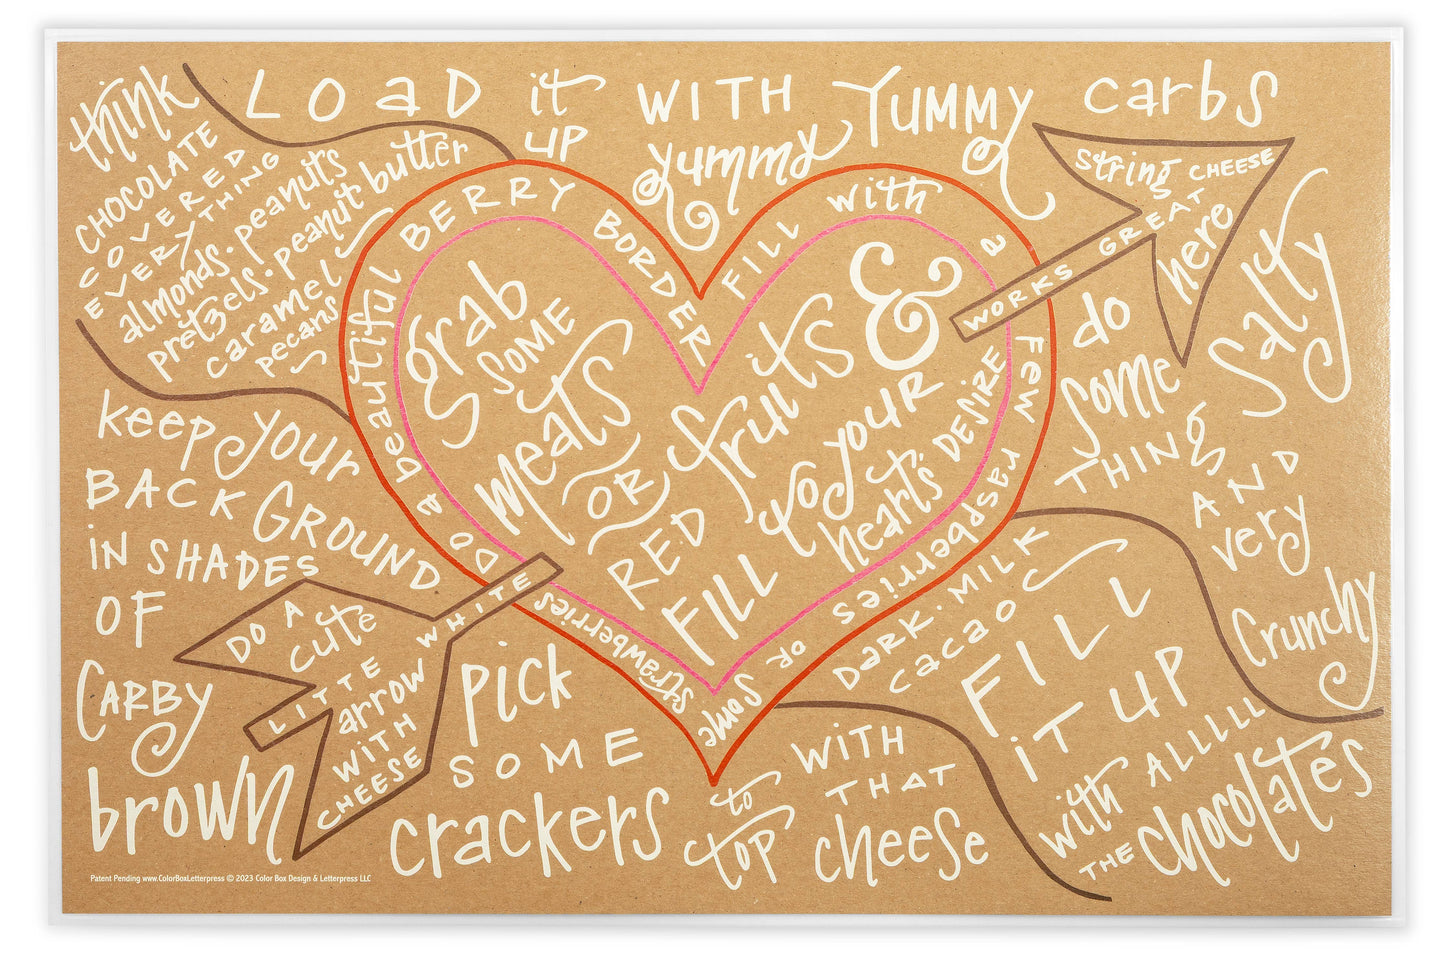 LOAD it UP WITH Yummy
yummy
carbs
think
CHOCOLATE
COVERED
EVERYTHING
almonds · peanuts
pretzels · peanut butter
caramel
pecans
DO a beautiful BERRY BORDER
FILL with a Few raspberries OR some strawberries
grab
SOME
meats
OR
RED
fruits &
FILL to YOUR
hearts' DESIRE
string CHEESE
WORKS GREAT
here
do
some
THING
Salty
AND
very
Crunchy
keep your
BACKGROUND
IN SHADES
OF
CARBY
brown
DO A
cute
LITTE
arrow
WITH
WHITE
CHEESE
pick
SOME
crackers
to
top
WITH
THAT
cheese
DARK · MILK
cacao
FILL
iT UP
with ALLLLL
THE chocolates
Patent Pending www.ColorBoxLetterpress © 2023 Color Box Design & Letterpress LLC